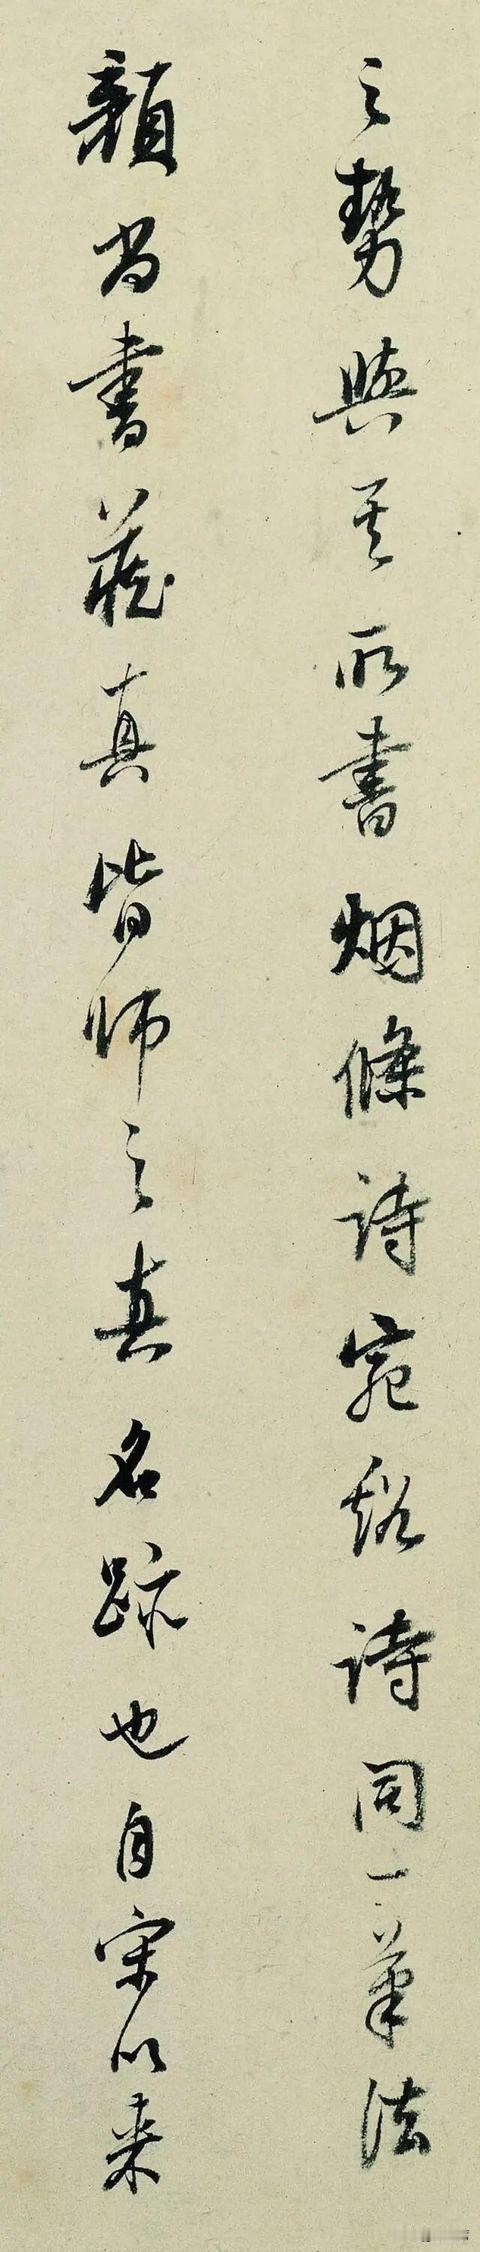 之势與其所書烟條詩宛谿詩同一筆法
顏尚書藏真皆師之真名跡也自宋以来